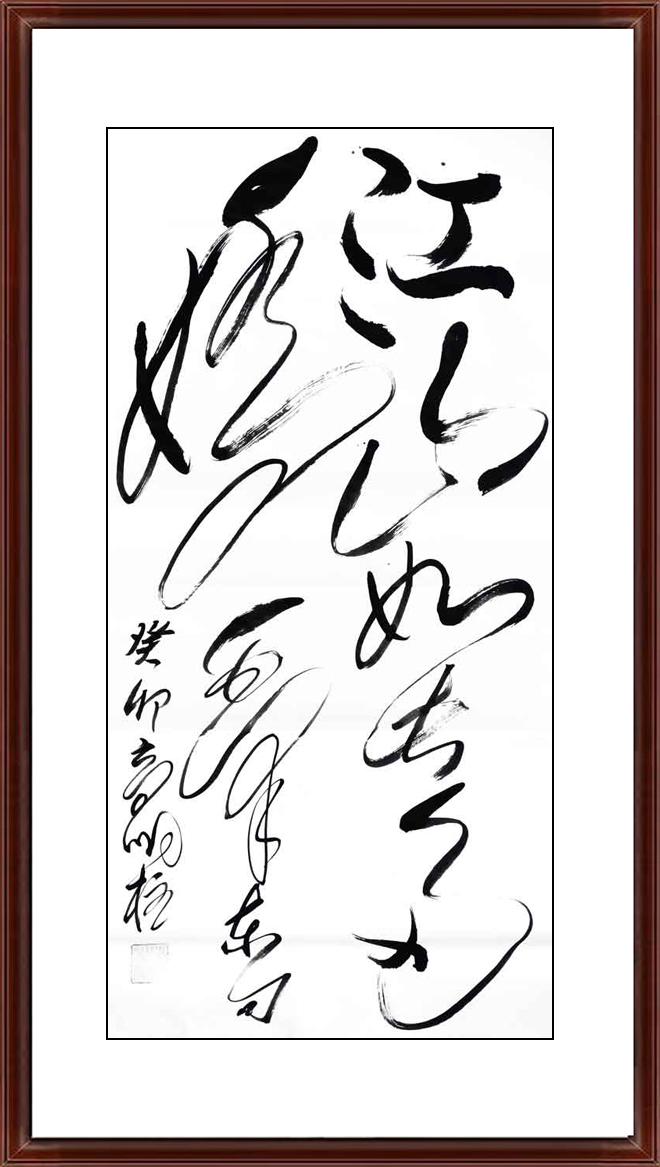 江山如此多
娇毛泽东句
癸卯高明柱